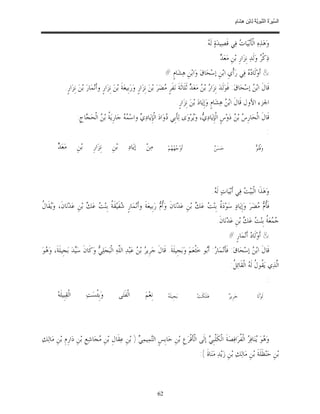 السيرة النبوية لابن هشام
وَهَذِهِ الْأَبْيَاتُ فِي قَصِيدَةٍ لَهُ
ذِكْرُ وَلَدِ نِزَارِ بْنِ مَعَدٍّ
أَوْلَادُهُ فِي رَأْيِ ابْنِ إسْحَاقَ وَابْنِ هِشَامٍ #
قَالَ ابْنُ إسْحَاقَ: فَوَلَدَ نِزَارُ بْنُ مَعَدٍّ ثَلَاثَةَ نَفَرٍ مُضَرَ بْنَ نِزَارٍ وَرَبِيعَةَ بْنَ نِزَارٍ وَأَنْمَارَ بْنَ نِزَارٍ
الجزء الأول قَالَ ابْنُ هِشَامٍ وَإِيَادَ بْنَ نِزَارٍ
قَالَ الْحَارِسُ بْنُ دَوْسٍ الْإِيَادِيُّ، وَيُرْوَى لِأَبِي دُوَادَ الْإِيَادِيّ وَاسْمُهُ جَارِيَةُ بْنُ الْحَجَّاجِ
وَفُتُوٌّ حَسَنٌ أَوْجُهُهُمْ مِنْ إيَادِ بْنِ نِزَارِ بْنِ مَعَدٍّ
وَهَذَا الْبَيْتُ فِي أَبْيَاتٍ لَهُ
فَأُمُّ مُضَرَ وَإِيَادٍ سَوْدَةُ بِنْتُ عَكِّ بْنِ عَدْنَانَ وَأُمُّ رَبِيعَةَ وَأَنْمَارٍ شُقَيْقَةُ بِنْتُ عَكِّ بْنِ عَدْنَانَ، وَيُقَالُ
جُمْعَةُ بِنْتُ عَكِّ بْنِ عَدْنَانَ
أَوْلَادُ أَنْمَارٍ #
قَالَ ابْنُ إسْحَاقَ: فَأَنْمَارُ أَبُو خَثْعَمَ وَبَجِيلَةَ قَالَ جَرِيرُ بْنُ عَبْدِ اللَّهِ الْبَجَلِيُّ وَكَانَ سَيِّدَ بَجِيلَةَ، وَهُوَ
الَّذِي يَقُولُ لَهُ الْقَائِلُ
لَوْلَا جَرِيرٌ هَلَكَتْ بَجِيلَهْ نِعْمَ الْفَتَى وَبِئْسَتِ الْقَبِيلَهْ
وَهُوَ يُنَافِرُ الْفَرَافِصَةَ الْكَلْبِيَّ إلَى الْأَقْرَعِ بْنِ حَابِسٍ التَّمِيمِيِّ ( بْنِ عِقَالِ بْنِ مُجَاشِعِ بْنِ دَارِمِ بْنِ مَالِكِ
بْنِ حَنْظَلَةَ بْنِ مَالِكِ بْنِ زَيْدِ مَنَاةَ )
62